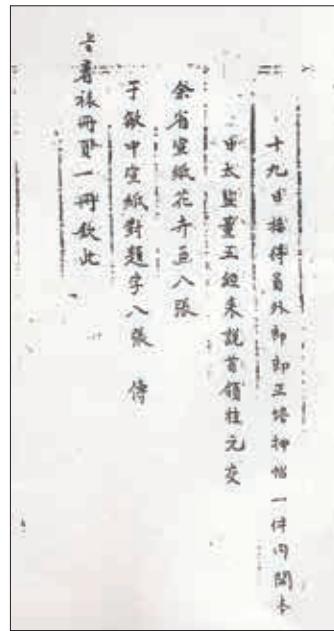 十九日接得員外郎郎正培押帖一件內開本
日太監董五經來說首領桂元交
余省宣紙花卉畫八張
于敏中宣紙對題字八張 傳
旨着裱冊頁一冊欽此